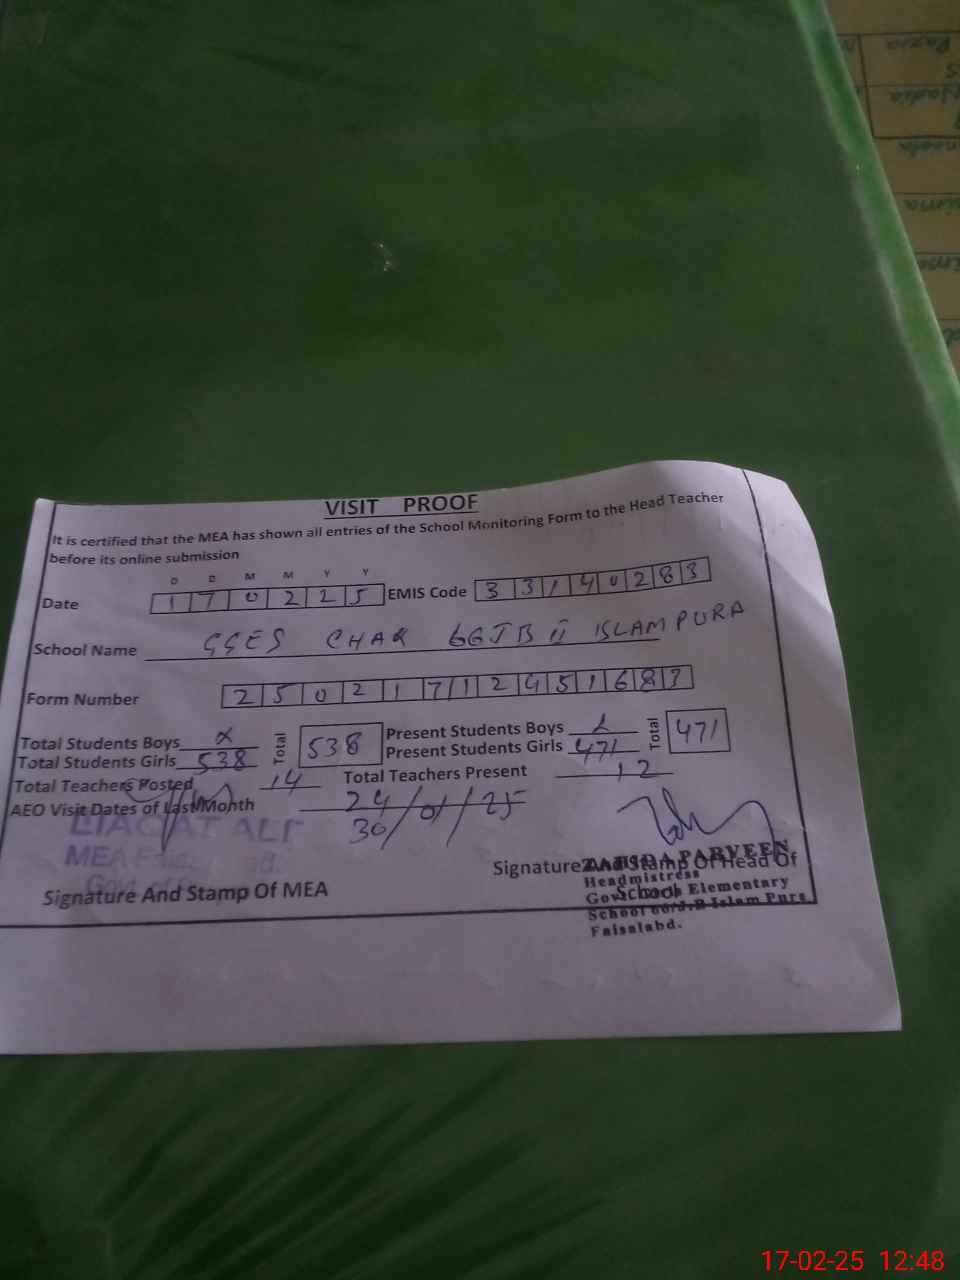 Razia
Nadia
VISIT PROOF
It is certified that the MEA has shown all entries of the School Monitoring Form to the Head Teacher
before its online submission
D D M M Y Y
Date 1 7 0 2 2 5 EMIS Code 3 3 1 4 0 2 8 3
School Name GGES CHAK 66JB II ISLAMPURA
Form Number 2 5 0 2 1 7 1 2 4 5 1 6 8 3
Total Students Boys x Total 538 Present Students Boys x Total 471
Total Students Girls 538 Present Students Girls 471
Total Teachers Posted 14 Total Teachers Present 12
AEO Visit Dates of Last Month 24/01/25
30
LIAQAT ALI
MEA
Signature And Stamp Of MEA
Signature And Stamp Of Head Of
School
ZAHIDA PARVEEN
Headmistress
Govt. Elementary
School 66/J.B Islam Pura
Faisalabd.
17-02-25 12:48